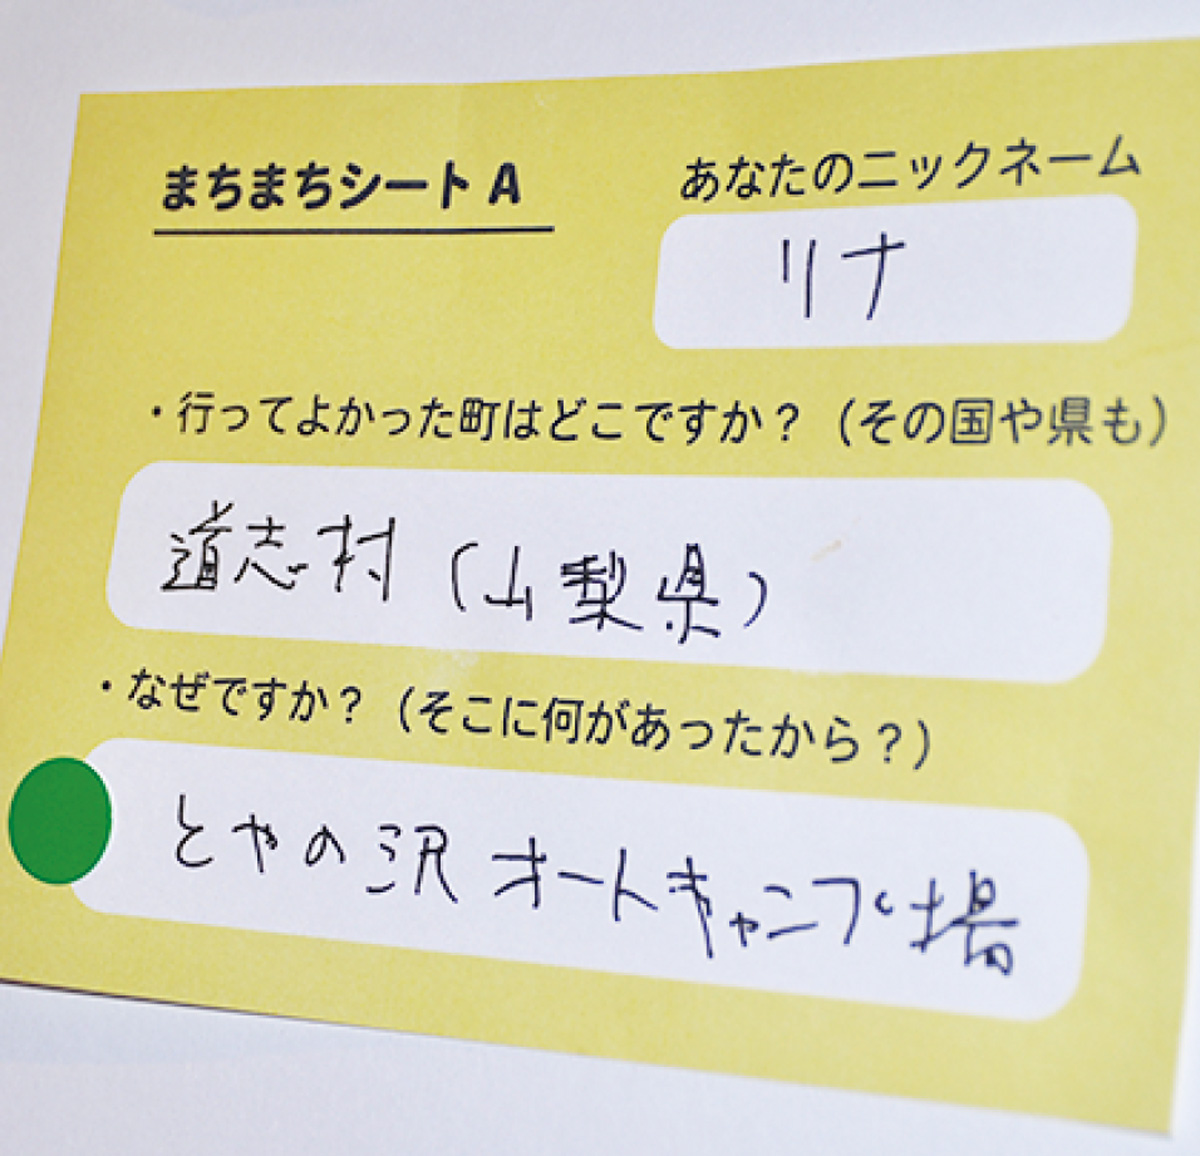 まちまちシート A
あなたのニックネーム
リナ
・行ってよかった町はどこですか？（その国や県も）
道志村（山梨県）
・なぜですか？（そこに何があったから？）
とやの沢 オートキャンプ場